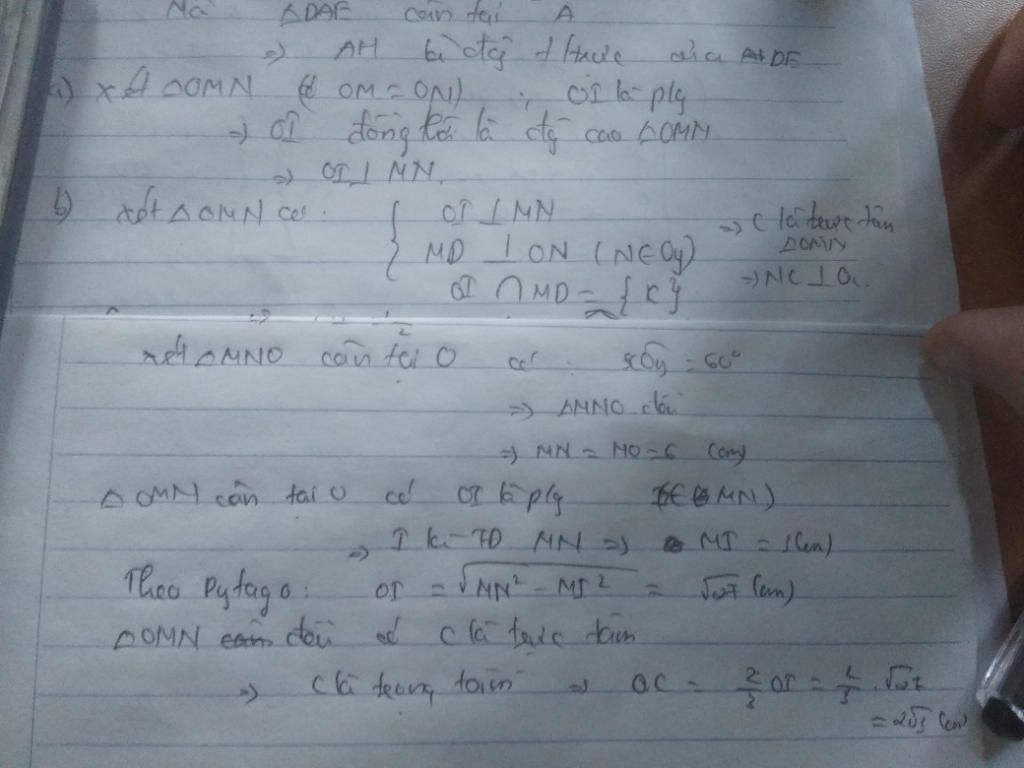 Mà ΔDAE cân tại A
=> AH là đg trung trực của DE
a) xét ΔOMN (có OM = ON) ; OI là p/g
=> OI đồng thời là đg cao ΔOMN
=> OI ⊥ MN.
b) xét ΔOMN có: { OI ⊥ MN
MD ⊥ ON (N ∈ Oy) => C là trực tâm ΔOMN
OI ∩ MD = {C} => NC ⊥ O
xét ΔMNO cân tại O có: xOy = 60°
=> ΔMNO đều
=> MN = MO = 6 (cm)
ΔOMN cân tại O có OI là p/g (I ∈ MN)
=> I là TD MN => MI = 3 (cm)
Theo Pytago: OI = √MN² - MI² = √27 (cm)
ΔOMN đều có C là trực tâm
=> C là trọng tâm => OC = 2/3 OI = 2/3 . √27
= 2√3 (cm)